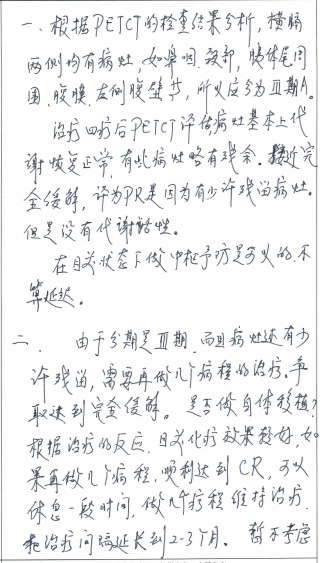 一、根据PETCT的检查结果分析，横膈
两侧均有病灶，如鼻咽、颈部，胰体尾周
围、腹膜、左侧腹壁等，所以应分为Ⅲ期A。
治疗四疗后PETCT评估病灶基本上代
谢恢复正常，有些病灶略有残余。接近完
全缓解，评为PR是因为有少许残留病灶。
但是没有代谢活性。
在目前状态下做中枢予防是可以的，不
算延迟。
二、由于分期是Ⅲ期，而且病灶还有少
许残留，需要再做几个疗程的治疗，争
取达到完全缓解。是否做自体移植？
根据治疗的反应，目前化疗效果较好，如
果再做几个疗程，顺利达到CR，可以
休息一段时间，做几个疗程维持治疗，
把治疗间隔延长到2-3个月。暂不考虑